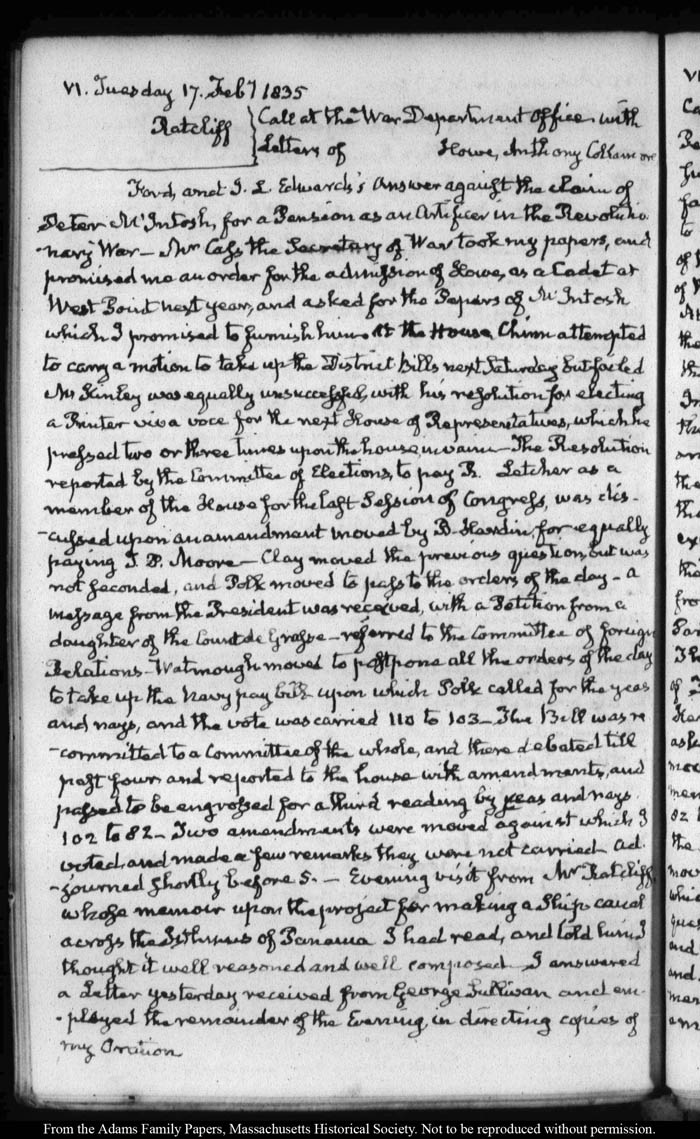 VI. Tuesday 17. Feby 1835
Ratcliff } Call at the War Department Office with
Letters of Howe, Anthony Collam or
Ford, and J. L. Edwards's Answer against the claim of
Peter McIntosh, for a Pension as an Artificer in the Revolutio
-nary War — Mr Cass the Secretary of War took my papers, and
promised me an order for the admission of Howe, as a Cadet at
West Point next year, and asked for the Papers of McIntosh
which I promised to furnish him. At the House Chinn attempted
to carry a motion to take up the District bills next Saturday but failed
McKinley was equally unsuccessful, with his resolution for electing
a Printer viva voce for the next House of Representatives, which he
pressed two or three times upon the house, in vain — The Resolution
reported by the Committee of Elections, to pay R. Letcher as a
member of the House for the last Session of Congress, was dis-
-cussed upon an amendment moved by B. Hardin, for equally
paying T. P. Moore — Clay moved the previous question, but was
not seconded, and Polk moved to pass to the orders of the day — a
message from the President was received, with a Petition from a
daughter of the Count de Grasse — referred to the Committee of foreign
Relations — Watmough moved to postpone all the orders of the day
to take up the Navy pay bill upon which Polk called for the yeas
and nays, and the vote was carried 110 to 103 — The Bill was re
-committed to a Committee of the whole, and there debated till
past four and reported to the house with amendments, and
passed to be engrossed for a third reading by yeas and nays
102 to 82 — Two amendments were moved against which I
voted and made a few remarks they were not carried. Ad-
-journed shortly before 5. — Evening visit from Mr Ratcliff,
whose memoir upon the project for making a Ship canal
across the Isthmus of Panama I had read, and told him I
thought it well reasoned and well composed — I answered
a Letter yesterday received from George Sullivan and em-
-ployed the remainder of the Evening, in directing copies of
my Oration
From the Adams Family Papers, Massachusetts Historical Society. Not to be reproduced without permission.